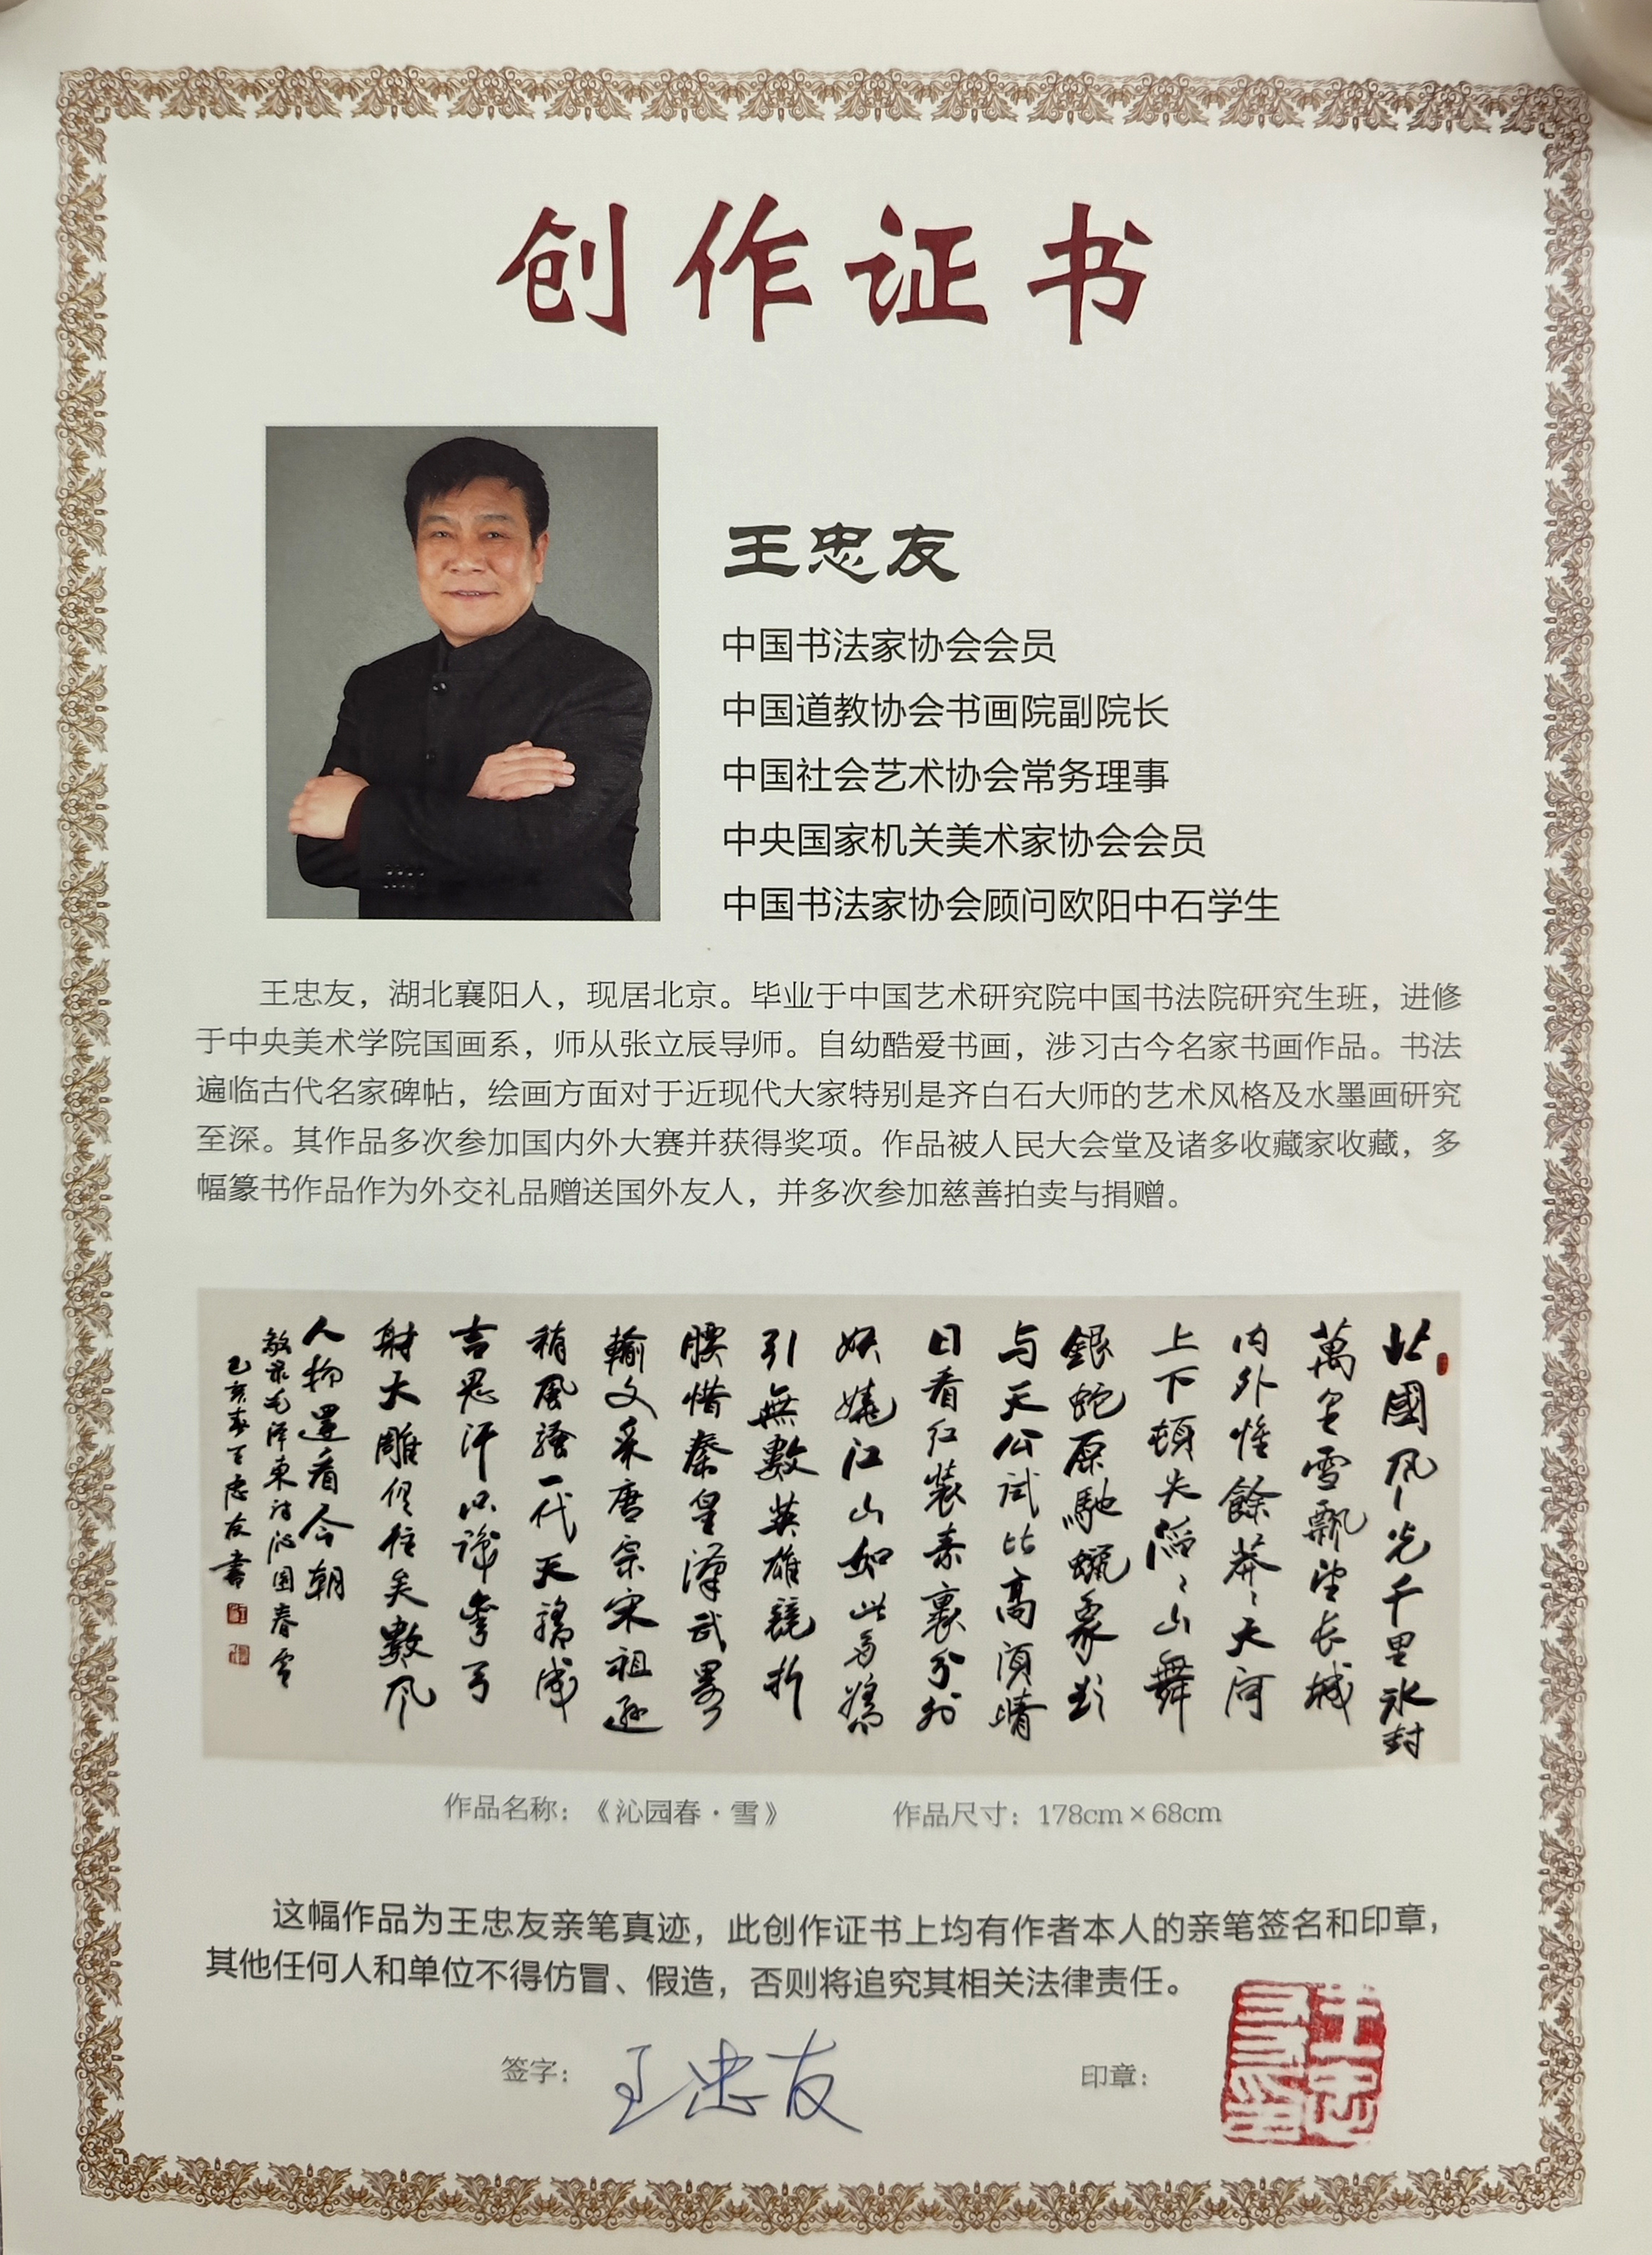 创作证书
王忠友
中国书法家协会会员
中国道教协会书画院副院长
中国社会艺术协会常务理事
中央国家机关美术家协会会员
中国书法家协会顾问欧阳中石学生
王忠友，湖北襄阳人，现居北京。毕业于中国艺术研究院中国书法院研究生班，进修
于中央美术学院国画系，师从张立辰导师。自幼酷爱书画，涉习古今名家书画作品。书法
遍临古代名家碑帖，绘画方面对于近现代大家特别是齐白石大师的艺术风格及水墨画研究
至深。其作品多次参加国内外大赛并获得奖项。作品被人民大会堂及诸多收藏家收藏，多
幅篆书作品作为外交礼品赠送国外友人，并多次参加慈善拍卖与捐赠。
北國风光千里冰封
萬里雪飘望长城
内外惟餘莽〻天河
上下頓失滔〻山舞
銀蛇原馳蠟象欲
与天公試比高須晴
日看红裝素裹分外
妖嬈江山如此多嬌
引無數英雄競折
腰惜秦皇漢武略
輸文采唐宗宋祖遜
稍風騷一代天驕成
吉思汗只識彎弓
射大雕俱往矣數风
人物還看今朝
敬录毛泽东诗沁园春雪
己亥春王忠友書
作品名称：《沁园春·雪》
作品尺寸：178cm×68cm
这幅作品为王忠友亲笔真迹，此创作证书上均有作者本人的亲笔签名和印章，
其他任何人和单位不得仿冒、假造，否则将追究其相关法律责任。
签字：王忠友
印章：